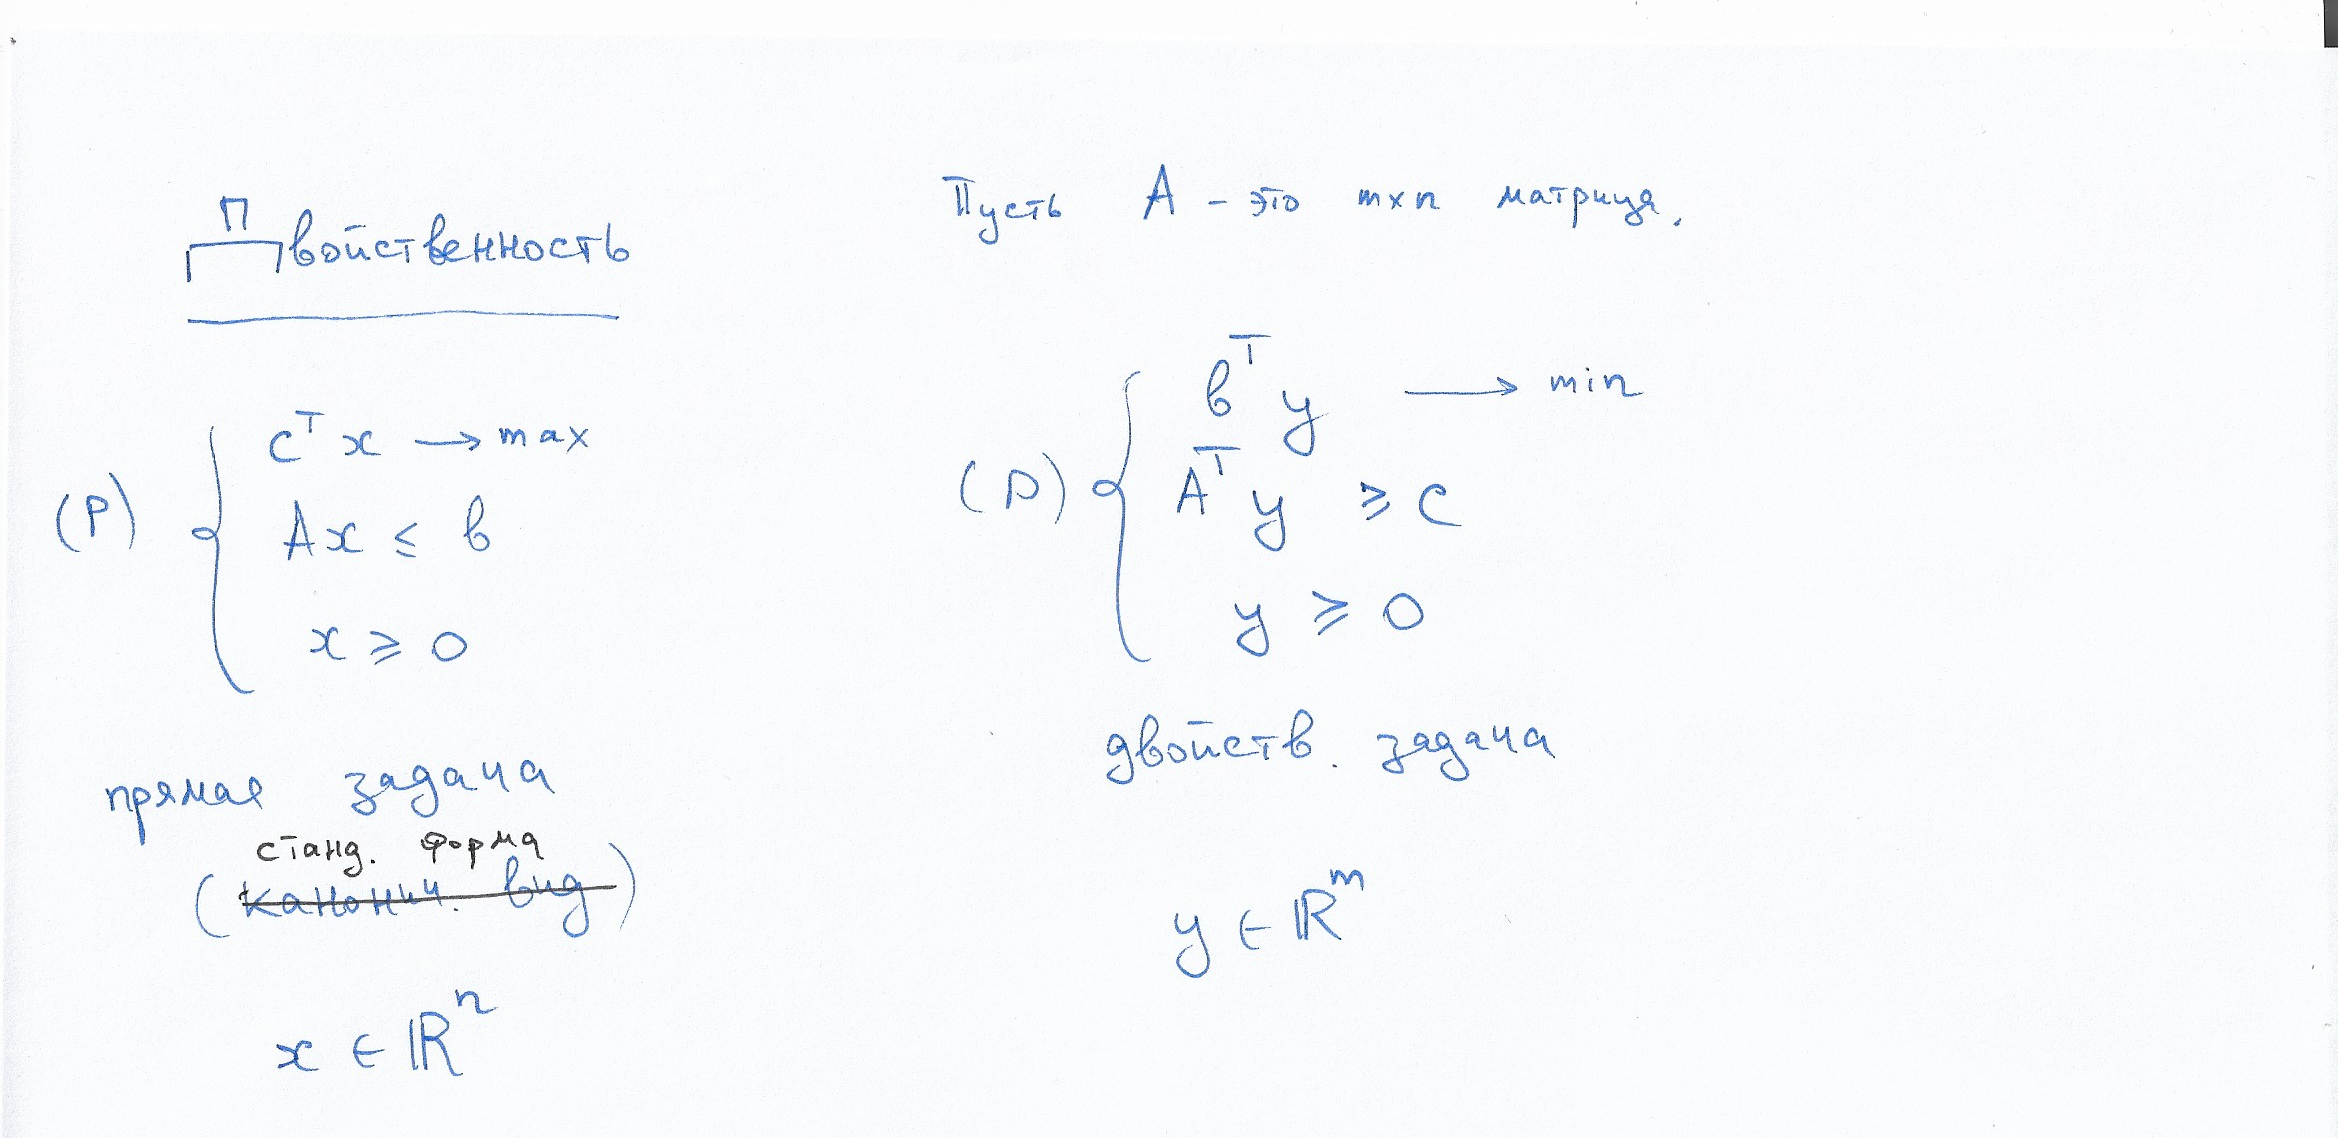 Двойственность
(P) { cᵀx → max
Ax ≤ b
x ≥ 0
прямая задача
станд. форма
(канонич. вид)
x ∈ ℝⁿ
Пусть A - это m×n матрица.
(D) { bᵀy → min
Aᵀy ≥ c
y ≥ 0
двойств. задача
y ∈ ℝᵐ